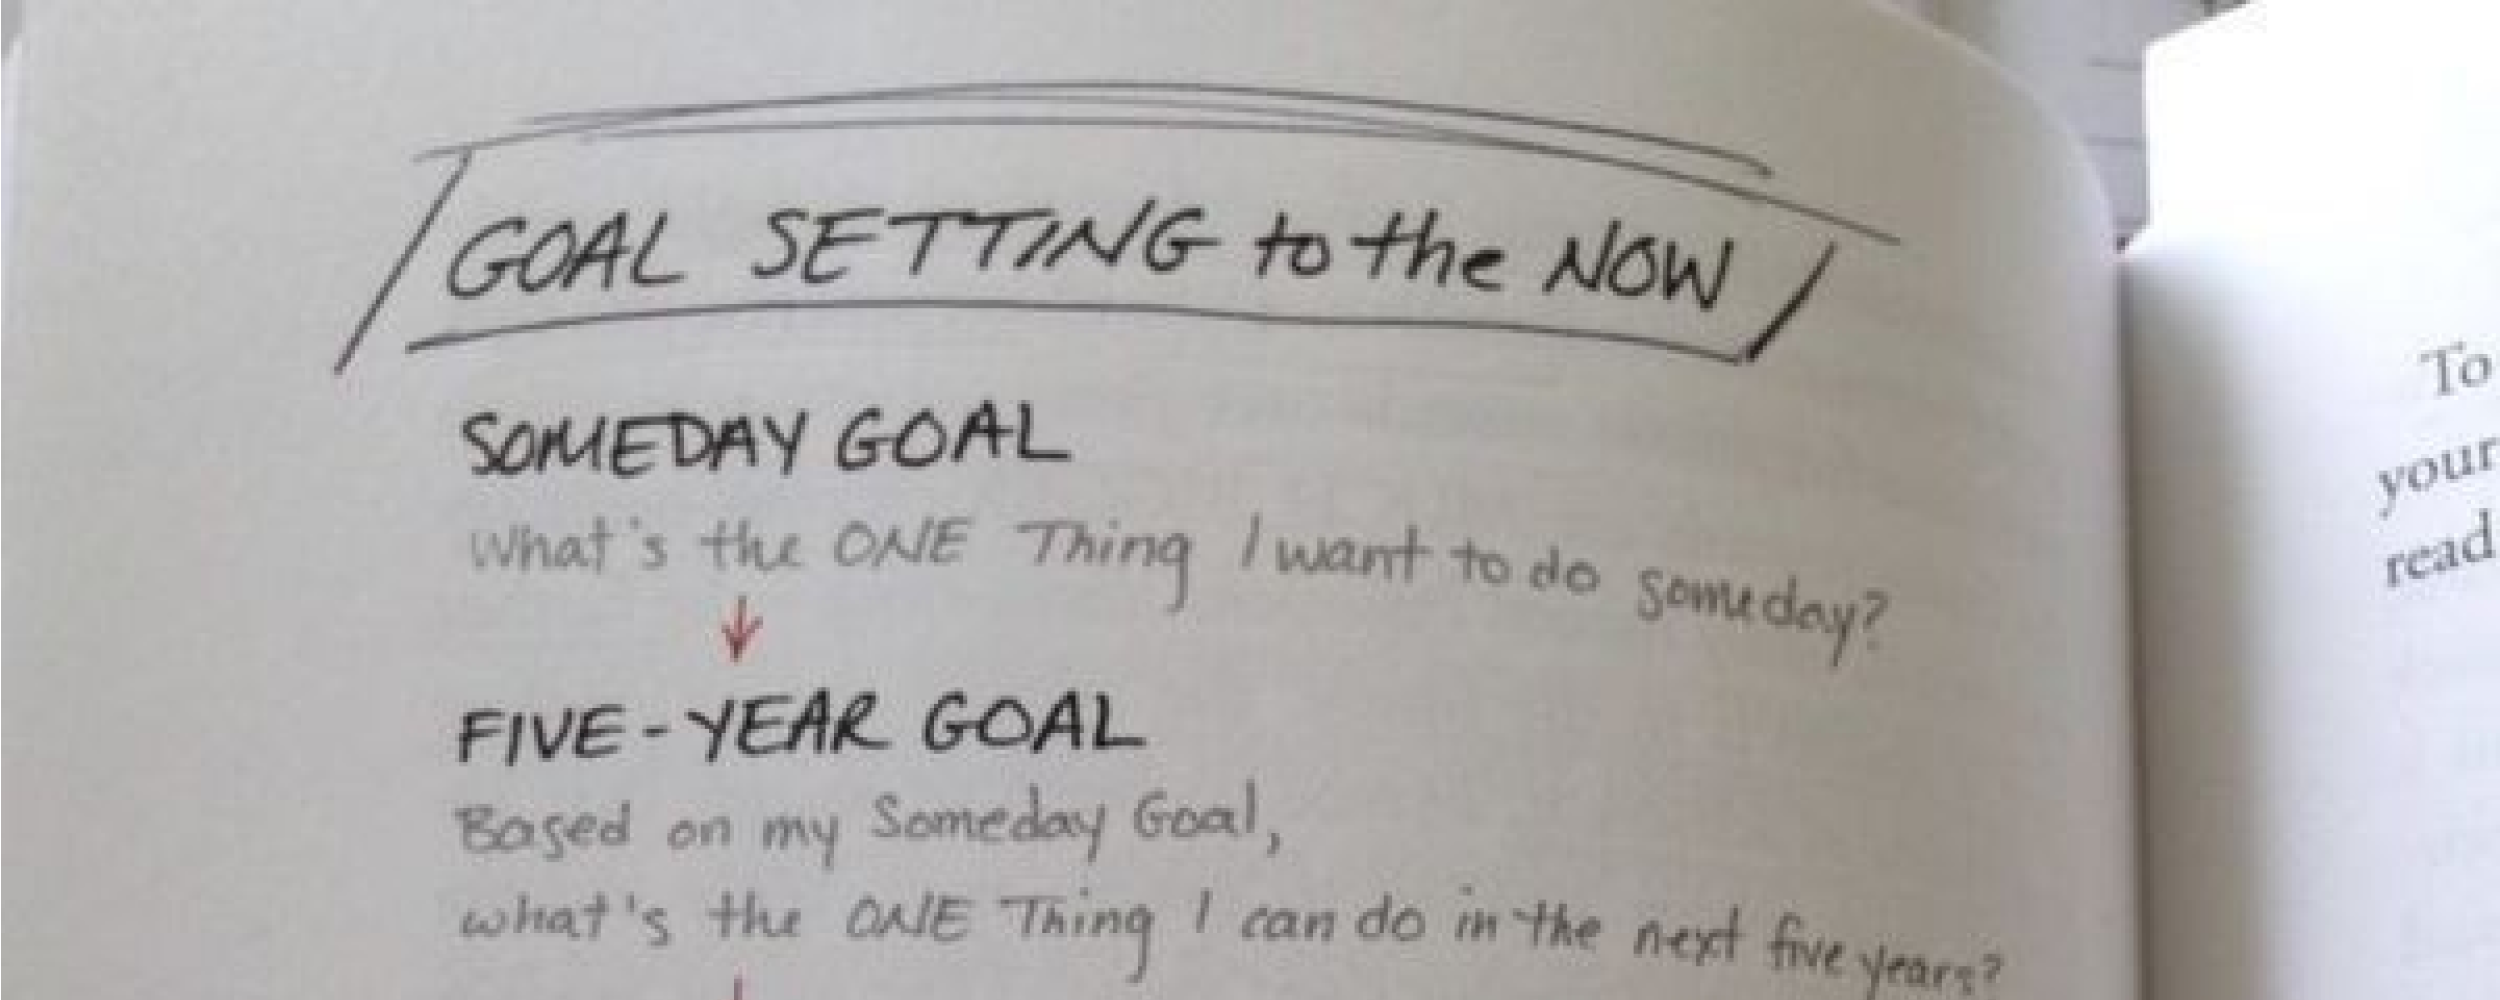 GOAL SETTING to the NOW
SOMEDAY GOAL
What's the ONE Thing I want to do someday?
FIVE-YEAR GOAL
Based on my Someday Goal,
what's the ONE Thing I can do in the next five years?
To
your
read